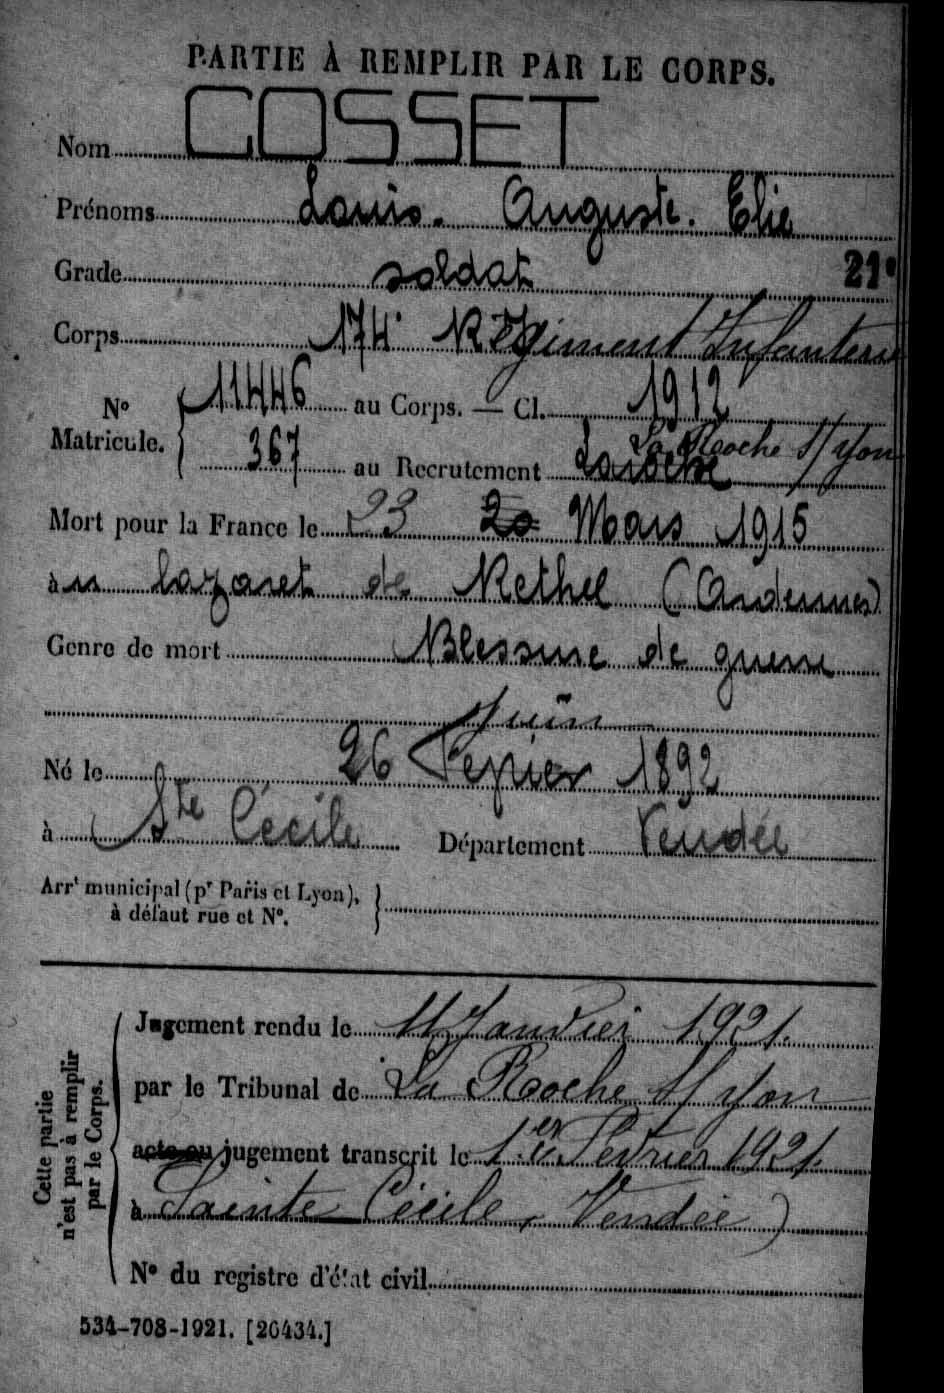 PARTIE À REMPLIR PAR LE CORPS.
Nom GOSSET
Prénoms Louis. Auguste. Elie
Grade soldat 21e
Corps 174e Régiment Infanterie
No Matricule. { 11446 au Corps. — Cl. 1912
La Roche S/ Yon
367 au Recrutement Laroche
Mort pour la France le 23 20 Mars 1915
à u lazaret de Rethel (Ardennes)
Genre de mort Blessure de guerre
Juin
Né le 26 Fevrier 1892
à Ste Cécile Département Vendée
Arrt municipal (pr Paris et Lyon), }
à défaut rue et No.
Cette partie n'est pas à remplir par le Corps.
Jugement rendu le 11 Janvier 1921.
par le Tribunal de La Roche S/ Yon
acte ou jugement transcrit le 1er Fevrier 1921.
à Sainte Cécile, Vendée)
No du registre d'état civil
534-708-1921. [26434.]